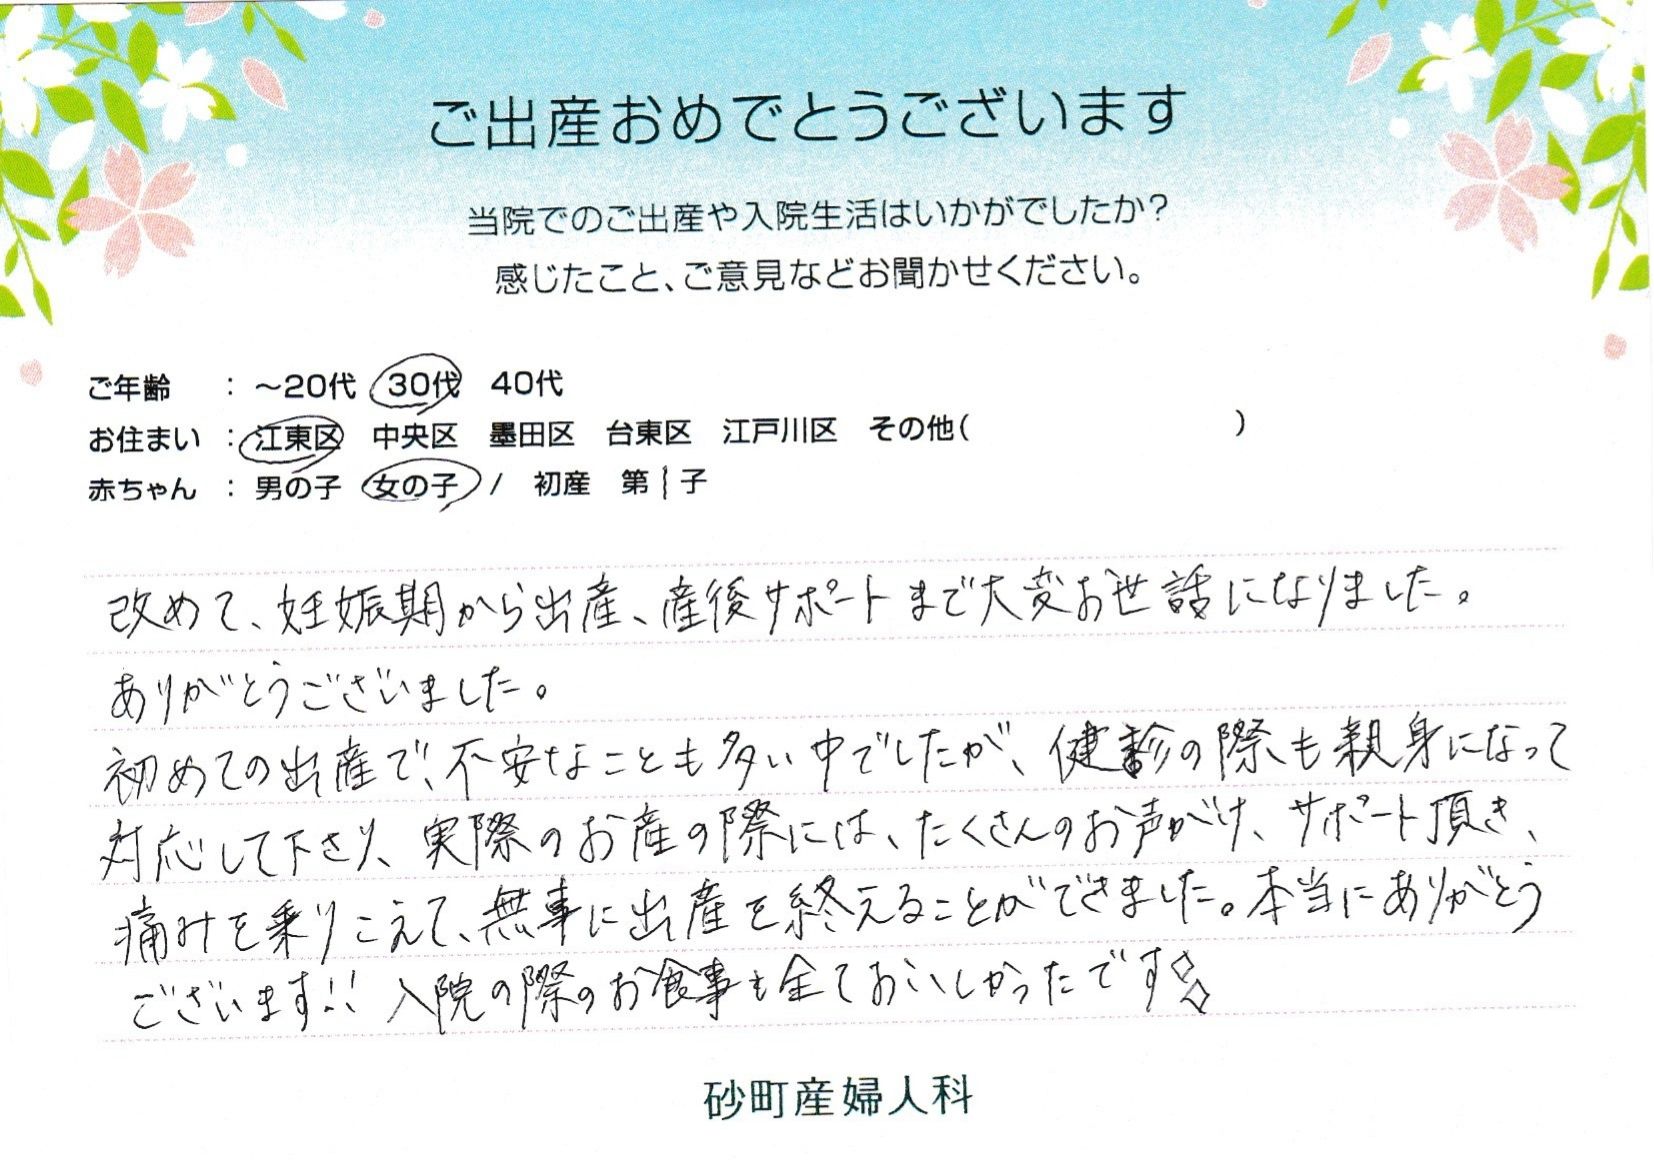 ご出産おめでとうございます
当院でのご出産や入院生活はいかがでしたか?
感じたこと、ご意見などお聞かせください。
ご年齢 : ~20代 30代 40代
お住まい : 江東区 中央区 墨田区 台東区 江戸川区 その他( )
赤ちゃん : 男の子 女の子 / 初産 第1子
改めて、妊娠期から出産、産後サポートまで大変お世話になりました。
ありがとうございました。
初めての出産で、不安なことも多い中でしたが、健診の際も親身になって
対応して下さり、実際のお産の際には、たくさんのお声がけ、サポート頂き、
痛みを乗りこえて、無事に出産を終えることができました。本当にありがとう
ございます!! 入院の際のお食事も全ておいしかったです
砂町産婦人科